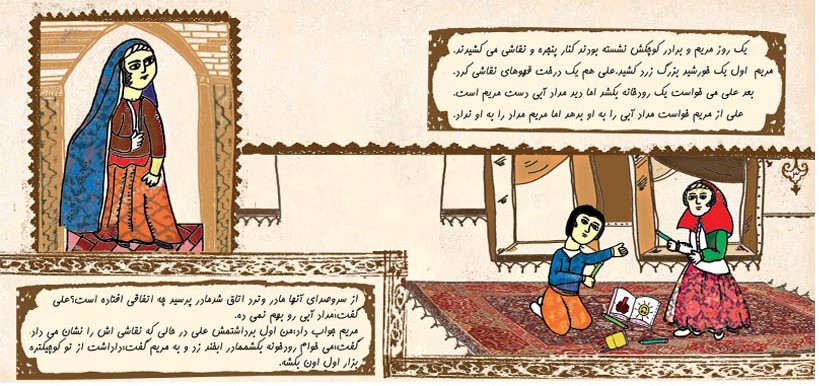 یک روز مریم و برادر کوچکش نشسته بودند کنار پنجره و نقاشی می کشیدند.
مریم اول یک خورشید بزرگ زرد کشید.علی هم یک درخت قهوهای نقاشی کرد.
بعد علی می خواست یک رودخانه بکشد اما دید مداد آبی دست مریم است.
علی از مریم خواست مداد آبی را به او بدهد اما مریم مداد را به او نداد.
از سروصدای آنها مادر وارد اتاق شد.مادر پرسید چه اتفاقی افتاده است؟علی
گفت:مداد آبی رو بهم نمی ده.
مریم جواب داد:من اول برداشتمش علی در حالی که نقاشی اش را نشان می داد
گفت:می خوام رودخونه بکشم.مادر لبخند زد و به مریم گفت:داداشت از تو کوچیکتره
بزار اول اون بکشه.